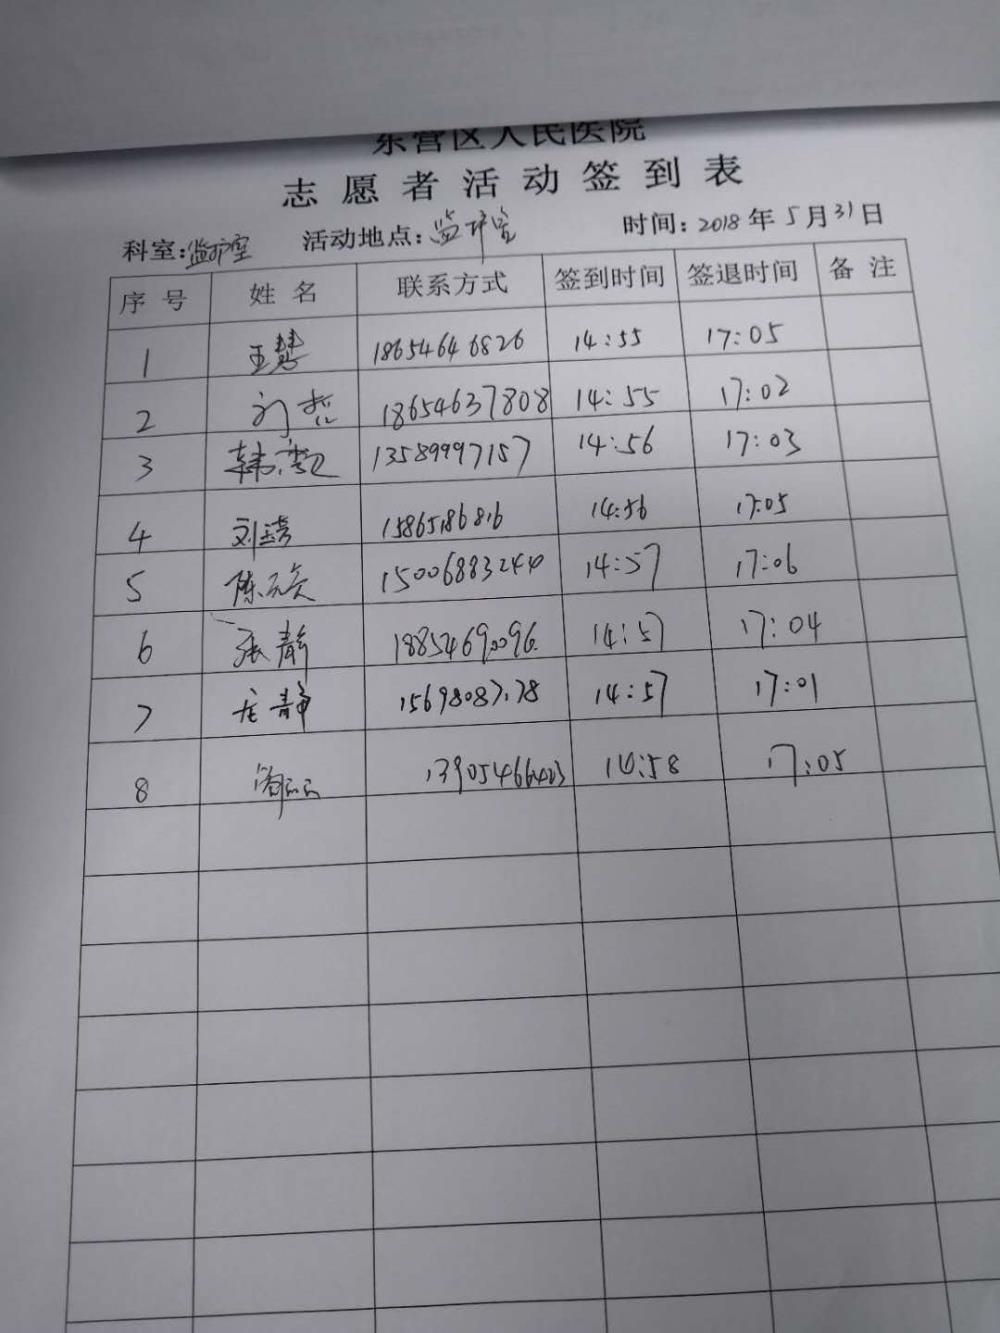 东营区人民医院
志愿者活动签到表
科室:监护室 活动地点:监护室 时间:2018年5月31日
序号 姓名 联系方式 签到时间 签退时间 备注
1 王慧 18654646826 14:55 17:05
2 刘哲 18654637808 14:55 17:02
3 韩 13589997157 14:56 17:03
4 刘 14:56 17:05
5 陈 15006883244 14:57 17:06
6 张静 14:57 17:04
7 静 14:57 17:01
8 14:58 17:05